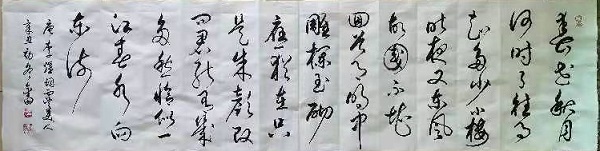 春花秋月
何时了往事
知多少小楼
昨夜又东风
故國不堪
回首月明中
雕栏玉砌
应犹在只
是朱颜改
问君能有几
多愁恰似一
江春水向
东流
唐李煜词虞美人
辛丑初冬